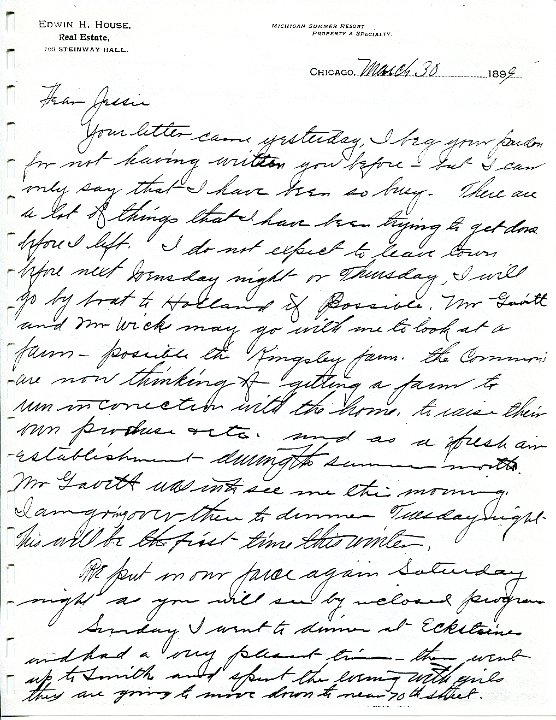 EDWIN H. HOUSE,
Real Estate,
703 STEINWAY HALL.
MICHIGAN SUMMER RESORT
PROPERTY A SPECIALTY.
CHICAGO, March 30 1899
Dear Jessie
Your letter came yesterday, I beg your pardon
for not having written you before - but I can
only say that I have been so busy. There are
a lot of things that I have been trying to get done
before I left. I do not expect to leave town
before next Wensday night or Thursday, I will
go by boat to Holland if Possible. Mr Gavitt
and Mr Wick may go with me to look at a
farm - possible the Kingsley farm. the Commons
are now thinking of getting a farm to
run in connection with the home. to raise their
own produse & etc. and as a fresh air
establishment during the summer months
Mr Gavitt was in to see me this morning.
I am going over there to dinner Tuesday night
this will be the first time this winter.
We put on our farce again Saturday
night as you will see by inclosed program
Sunday I went to dinner at Ecksteines
and had a very pleasant time - then went
up to Smiths and spent the evening with girls
they are going to move down to near 70th street.